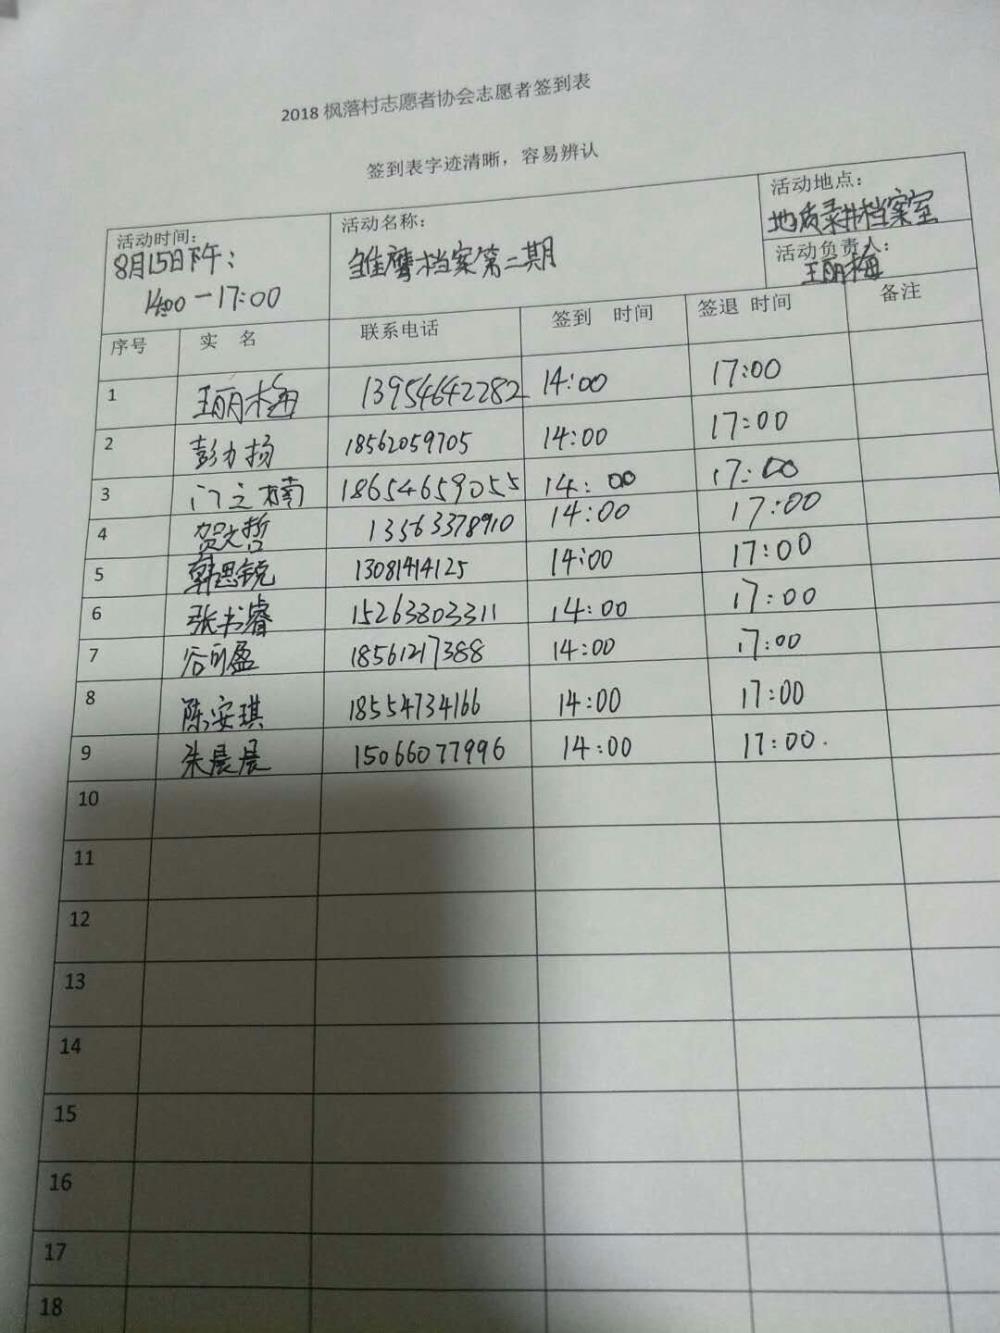 2018 枫落村志愿者协会志愿者签到表
签到表字迹清晰，容易辨认
活动时间：
8月15日下午：
14:00－17:00
活动名称：
雏鹰档案第二期
活动地点：
地质录井档案室
活动负责人：
王丽梅
序号 实 名 联系电话 签到 时间 签退 时间 备注
1 王丽梅 13954642282 14:00 17:00
2 彭力扬 18562059705 14:00 17:00
3 门立楠 18654659055 14:00 17:00
4 贺文哲 13563378910 14:00 17:00
5 韩思锐 13081414125 14:00 17:00
6 张书睿 15263803311 14:00 17:00
7 谷可盈 18561217388 14:00 17:00
8 陈安琪 18554734166 14:00 17:00
9 朱晨晨 15066077996 14:00 17:00.
10
11
12
13
14
15
16
17
18